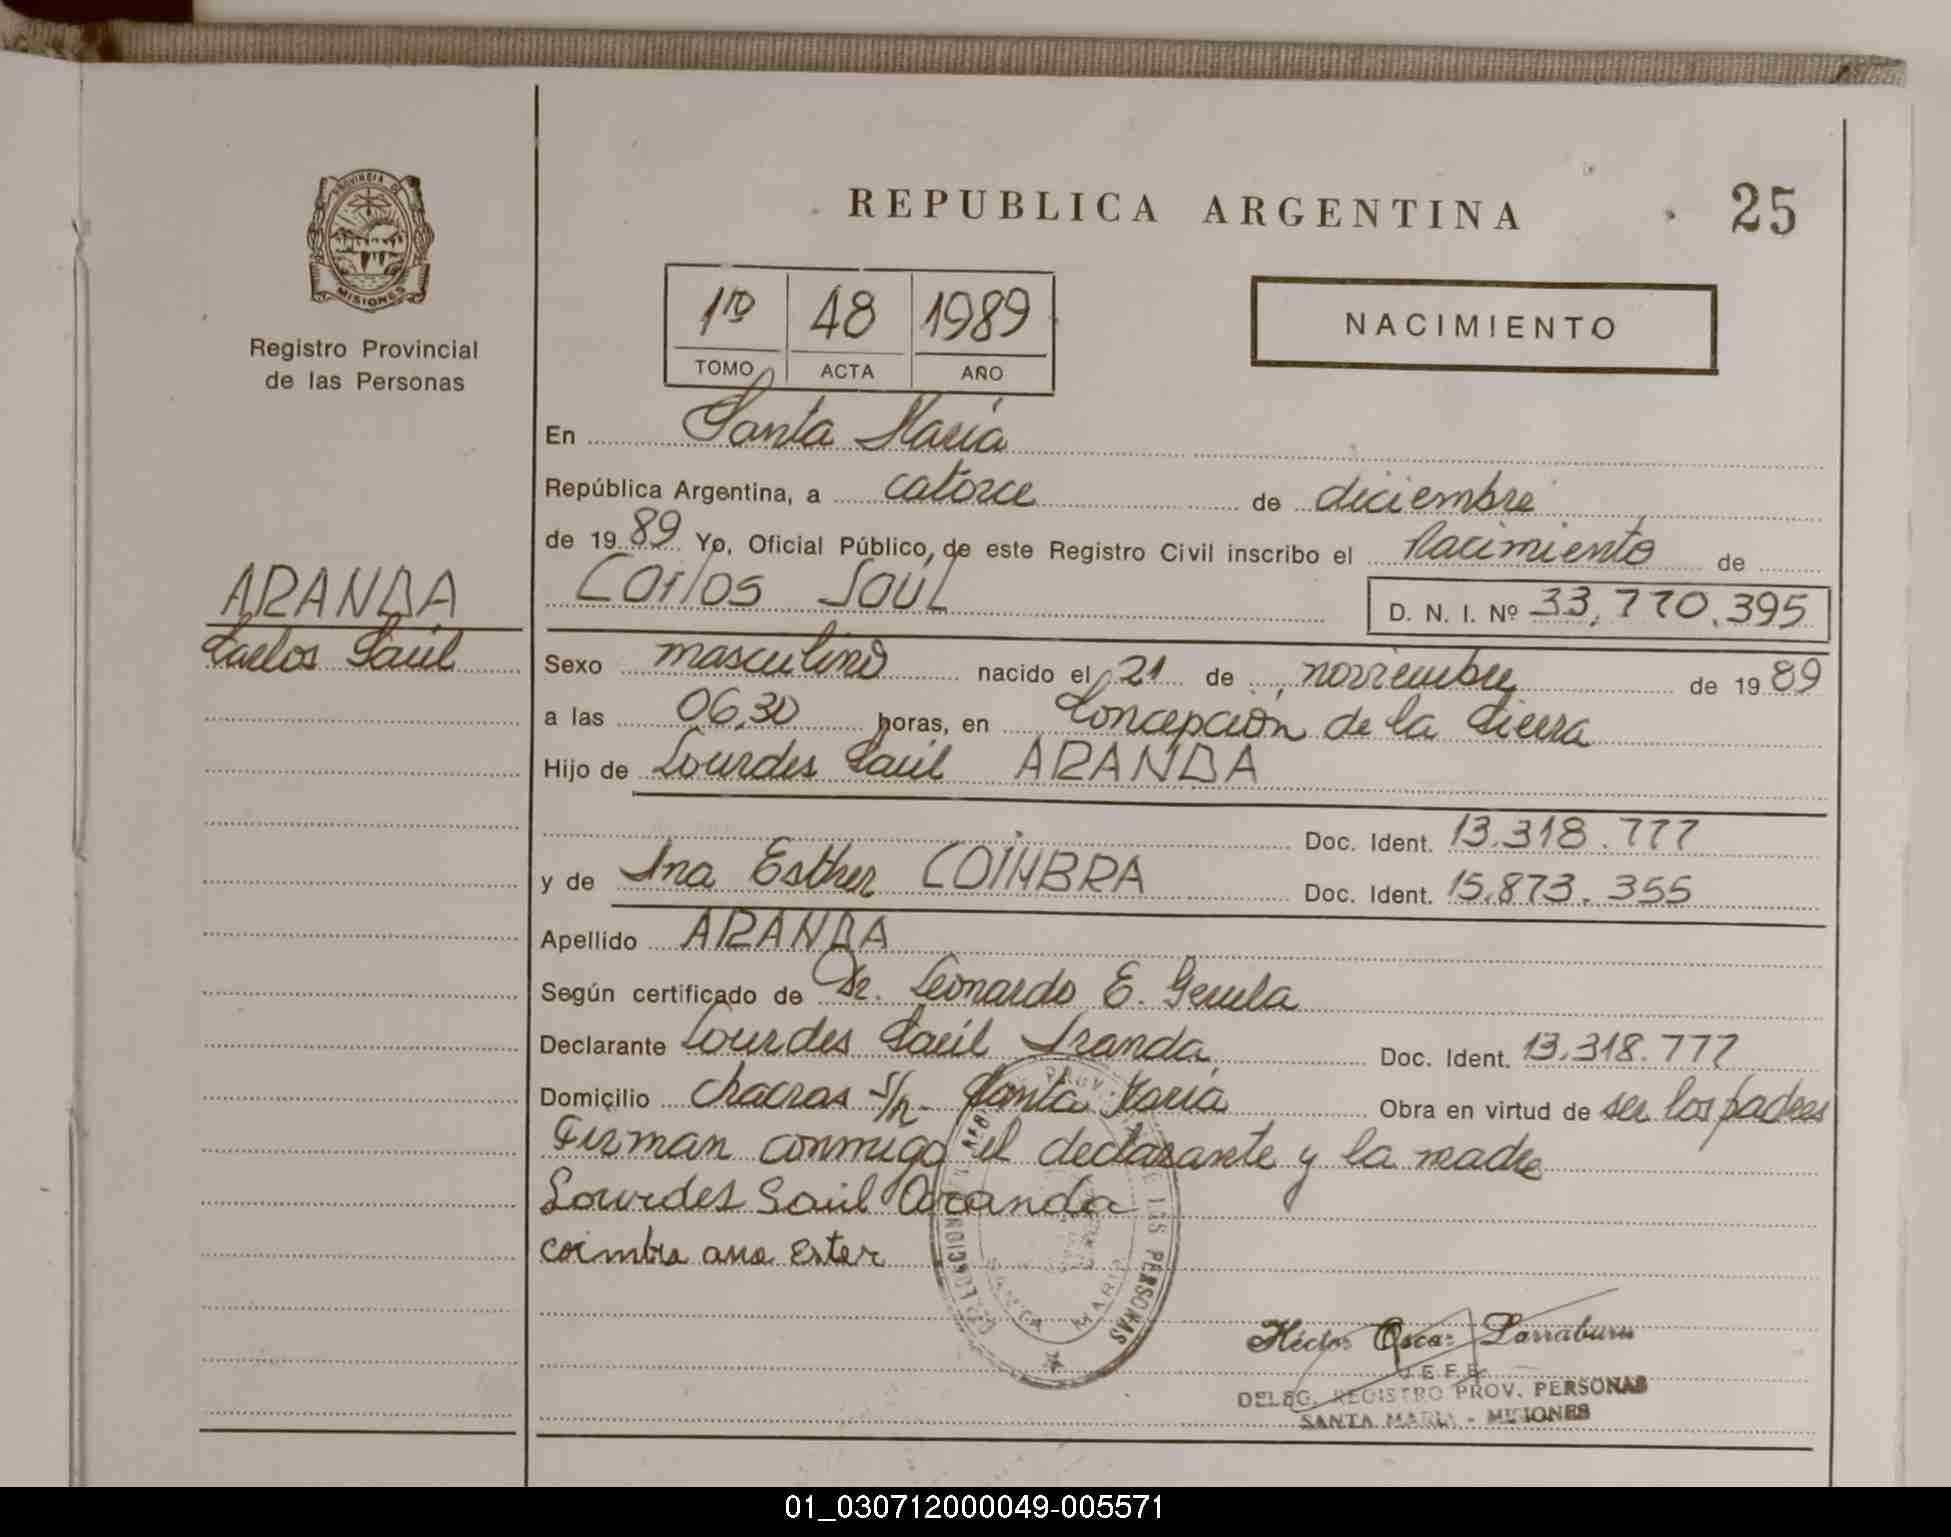 PROVINCIA DE
MISIONES
Registro Provincial
de las Personas
REPUBLICA ARGENTINA
25
1ro 48 1989
TOMO ACTA AÑO
NACIMIENTO
En Santa María
República Argentina, a catorce de diciembre
de 1989 Yo, Oficial Público, de este Registro Civil inscribo el Nacimiento de
Carlos Saúl D. N. I. Nº 33,770.395
ARANDA
Carlos Saúl
Sexo masculino nacido el 21 de noviembre de 1989
a las 06,30 horas, en Concepción de la Sierra
Hijo de Lourdes Saúl ARANDA
Doc. Ident. 13.318.777
y de Ana Esther COIMBRA Doc. Ident. 15.873.355
Apellido ARANDA
Según certificado de Dr. Leonardo E.
Declarante Lourdes Saúl Aranda Doc. Ident. 13.318.777
Domicilio chacras s/n- Santa María Obra en virtud de ser los padres
Firman conmigo el declarante y la madre
Lourdes Saúl Aranda
Coimbra ana Ester
DE LAS PERSONAS
SANTA MARIA
Héctor Oscar Larraburu
JEFE
DELEG. REGISTRO PROV. PERSONAS
SANTA MARIA - MISIONES
01_030712000049-005571